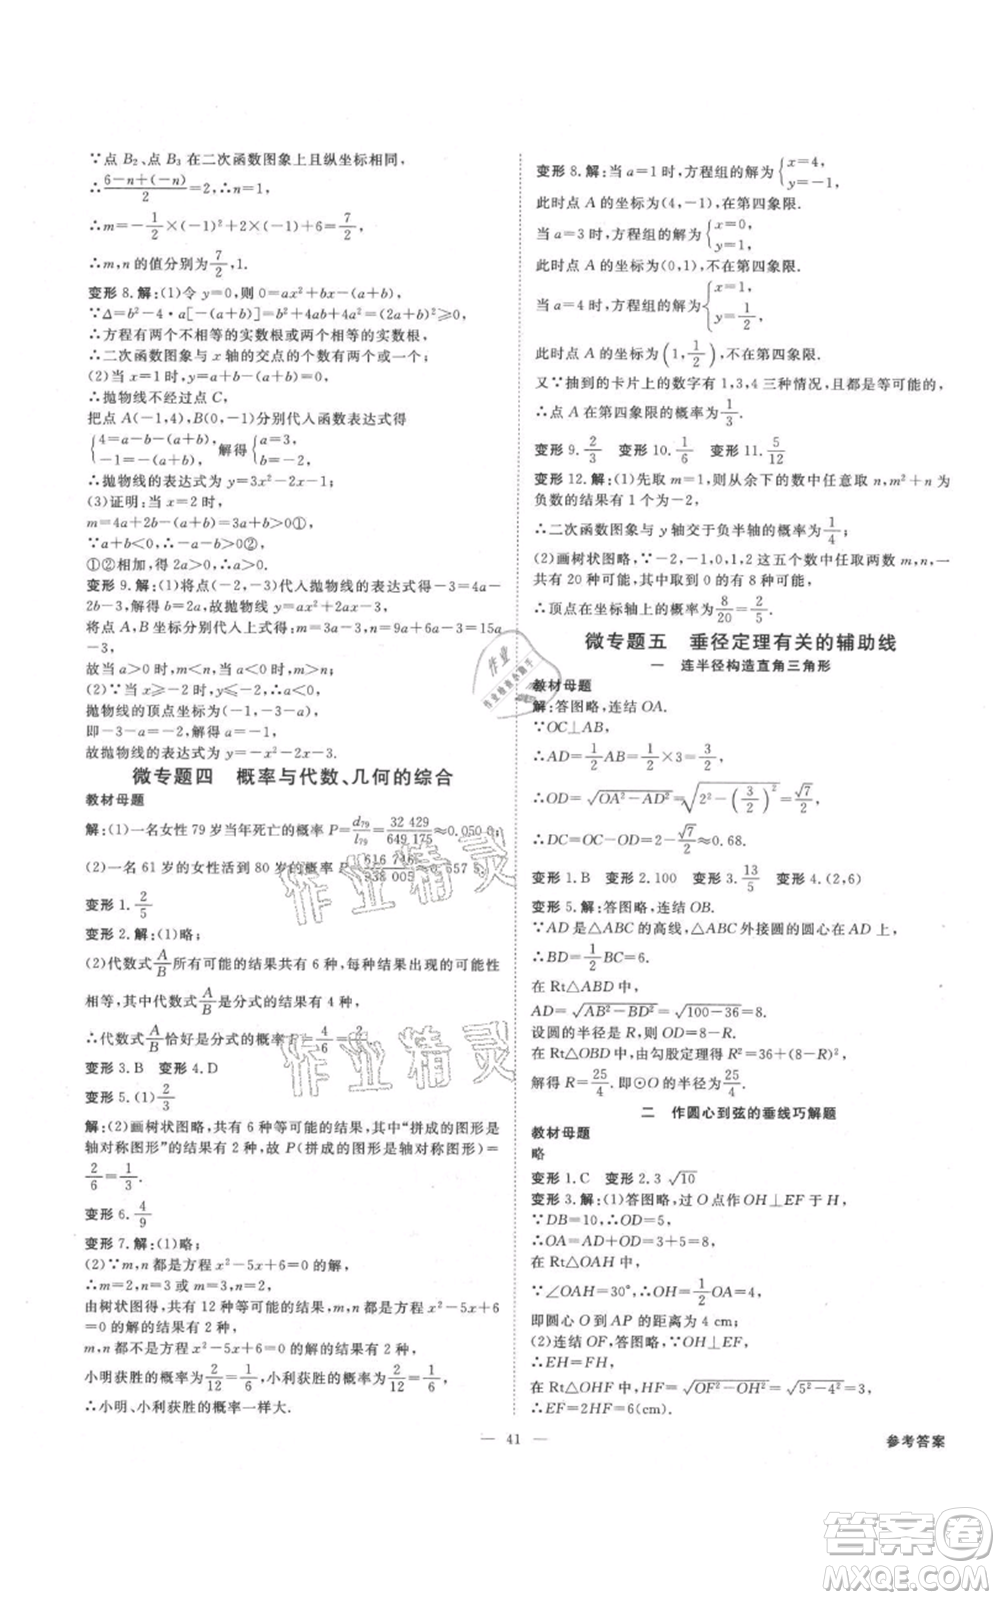 ∵点 B₂、点 B₃ 在二次函数图象上且纵坐标相同,
∴(6-n+(-n))/2=2,∴n=1,
∴m=-1/2×(-1)²+2×(-1)+6=7/2,
∴m,n的值分别为7/2,1.
变形 8.解:(1)令 y=0,则 0=ax²+bx-(a+b).
∵Δ=b²-4·a[-(a+b)]=b²+4ab+4a²=(2a+b)²≥0,
∴方程有两个不相等的实数根或两个相等的实数根,
∴二次函数图象与 x 轴的交点的个数有两个或一个;
(2)当 x=1 时,y=a+b-(a+b)=0,
∴抛物线不经过点 C,
把点 A(-1,4),B(0,-1)分别代入函数表达式得
{4=a-b-(a+b), -1=-(a+b), 解得{a=3, b=-2.
∴抛物线的表达式为 y=3x²-2x-1;
(3)证明:当 x=2 时,
m=4a+2b-(a+b)=3a+b>0①,
∵a+b<0,∴-a-b>0②,
①②相加,得 2a>0,∴a>0.
变形 9.解:(1)将点(-2,-3)代入抛物线的表达式得-3=4a-
2b-3,解得 b=2a,故抛物线 y=ax²+2ax-3,
将点 A、B 坐标分别代入上式得:y₁=5a-3,y₂=15a
-3,
故当 a>0 时,y₁<y₂;当 a<0 时,y₁>y₂;
(2)当 x≥-2 时,y≤-2,则 a<0,
抛物线的顶点坐标为(-1,-3-a),
即-3-a=-2,解得 a=-1,
故抛物线的表达式为 y=-x²-2x-3.
微专题四 概率与代数、几何的综合
教材母题
解:(1)一名女性 79 岁当年死亡的概率 P=d₇₉/l₇₉=32 429/649 175≈0.050 0;
(2)一名 61 岁的女性活到 80 岁的概率 P=616 746/938 009≈0.657 5.
变形 1.2/5
变形 2.解:(1)略;
(2)代数式A/B所有可能的结果共有 6 种,每种结果出现的可能性
相等,其中代数式A/B是分式的结果有 4 种,
∴代数式A/B恰好是分式的概率 P=4/6=2/3.
变形 3.B 变形 4.D
变形 5.(1)2/3
解:(2)画树状图略,共有 6 种等可能的结果,其中“拼成的图形是
轴对称图形”的结果有 2 种,故 P(拼成的图形是轴对称图形)=
2/6=1/3.
变形 6.4/9
变形 7.解:(1)略;
(2)∵m,n都是方程 x²-5x+6=0 的解,
∴m=2,n=3 或 m=3,n=2,
由树状图得,共有 12 种等可能的结果,m,n 都是方程 x²-5x+6
=0 的解的结果有 2 种,
m,n 都不是方程 x²-5x+6=0 的解的结果有 2 种,
小明获胜的概率为2/12=1/6,小利获胜的概率为2/12=1/6,
∴小明、小利获胜的概率一样大.
变形 8.解:当 a=1 时,方程组的解为{x=4, y=-1,
此时点 A 的坐标为(4,-1),在第四象限.
当 a=3 时,方程组的解为{x=0, y=1,
此时点 A 的坐标为(0,1),不在第四象限.
当 a=4 时,方程组的解为{x=1, y=1/2,
此时点 A 的坐标为(1,1/2),不在第四象限.
又∵抽到的卡片上的数字有 1,3,4 三种情况,且是等可能的,
∴点 A 在第四象限的概率为1/3.
变形 9.2/3 变形 10.1/6 变形 11.5/12
变形 12.解:(1)先取 m=1,从余下的数中任意取 n,m²+n 为
负数的结果有 1 个为-2,
∴二次函数图象与 y 轴交于负半轴的概率为1/4;
(2)画树状图略,∵-2,-1,0,1,2 这五个数中任取两数 m,n,一
共有 20 种可能,其中取到 0 的有 8 种可能,
∴顶点在坐标轴上的概率为8/20=2/5.
微专题五 垂径定理有关的辅助线
一 连半径构造直角三角形
教材母题
解:答图略,连结 OA.
∵OC⊥AB,
∴AD=1/2AB=1/2×3=3/2,
∴OD=√(OA²-AD²)=√(2²-(3/2)²)=√7/2,
∴DC=OC-OD=2-√7/2≈0.68.
变形 1.B 变形 2.100 变形 3.13/5 变形 4.(2,6)
变形 5.解:答图略,连结 OB.
∵AD 是△ABC 的高线,△ABC 外接圆的圆心在 AD 上,
∴BD=1/2BC=6.
在 Rt△ABD 中,
AD=√(AB²-BD²)=√(100-36)=8.
设圆的半径是 R,则 OD=8-R.
在 Rt△OBD 中,由勾股定理得 R²=36+(8-R)²,
解得 R=25/4.即⊙O 的半径为25/4.
二 作圆心到弦的垂线巧解题
教材母题
略
变形 1.C 变形 2.3√10
变形 3.解:(1)答图略,过 O 点作 OH⊥EF 于 H,
∵DB=10,∴OD=5,
∴OA=AD+OD=3+5=8,
在 Rt△OAH 中,
∵∠OAH=30°,∴OH=1/2OA=4,
即圆心 O 到 AP 的距离为 4 cm;
(2)连结 OF,答图略,∵OH⊥EF,
∴EH=FH,
在 Rt△OHF 中,HF=√(OF²-OH²)=√(5²-4²)=3,
∴EF=2HF=6(cm).
— 41 —
参考答案
作业精灵
作业精灵
作业
答案圈
MXQE.COM